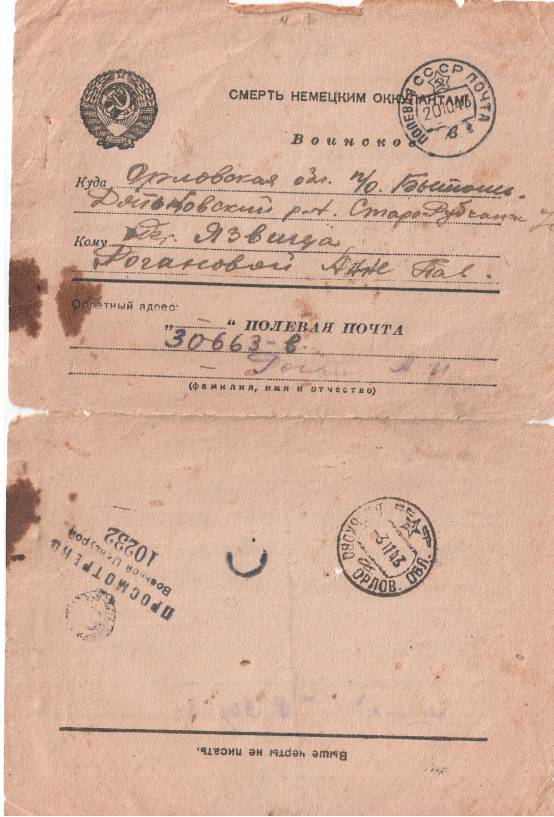 СМЕРТЬ НЕМЕЦКИМ ОККУПАНТАМ!
ПОЛЕВАЯ ПОЧТА
СССР
20.10.43
в
Воинское
Куда Орловская обл. п/о. Бытошь.
Дятьковский р-н. Старо-Рубчан
Кому Язвица
Рогановой Анне Пав.
Обратный адрес:
„ — “ ПОЛЕВАЯ ПОЧТА
30663-в.
(фамилия, имя и отчество)
ПРОСМОТРЕНО
Военной Цензурой
10252
ОРЛОВ. ОБЛ.
Выше черты не писать.